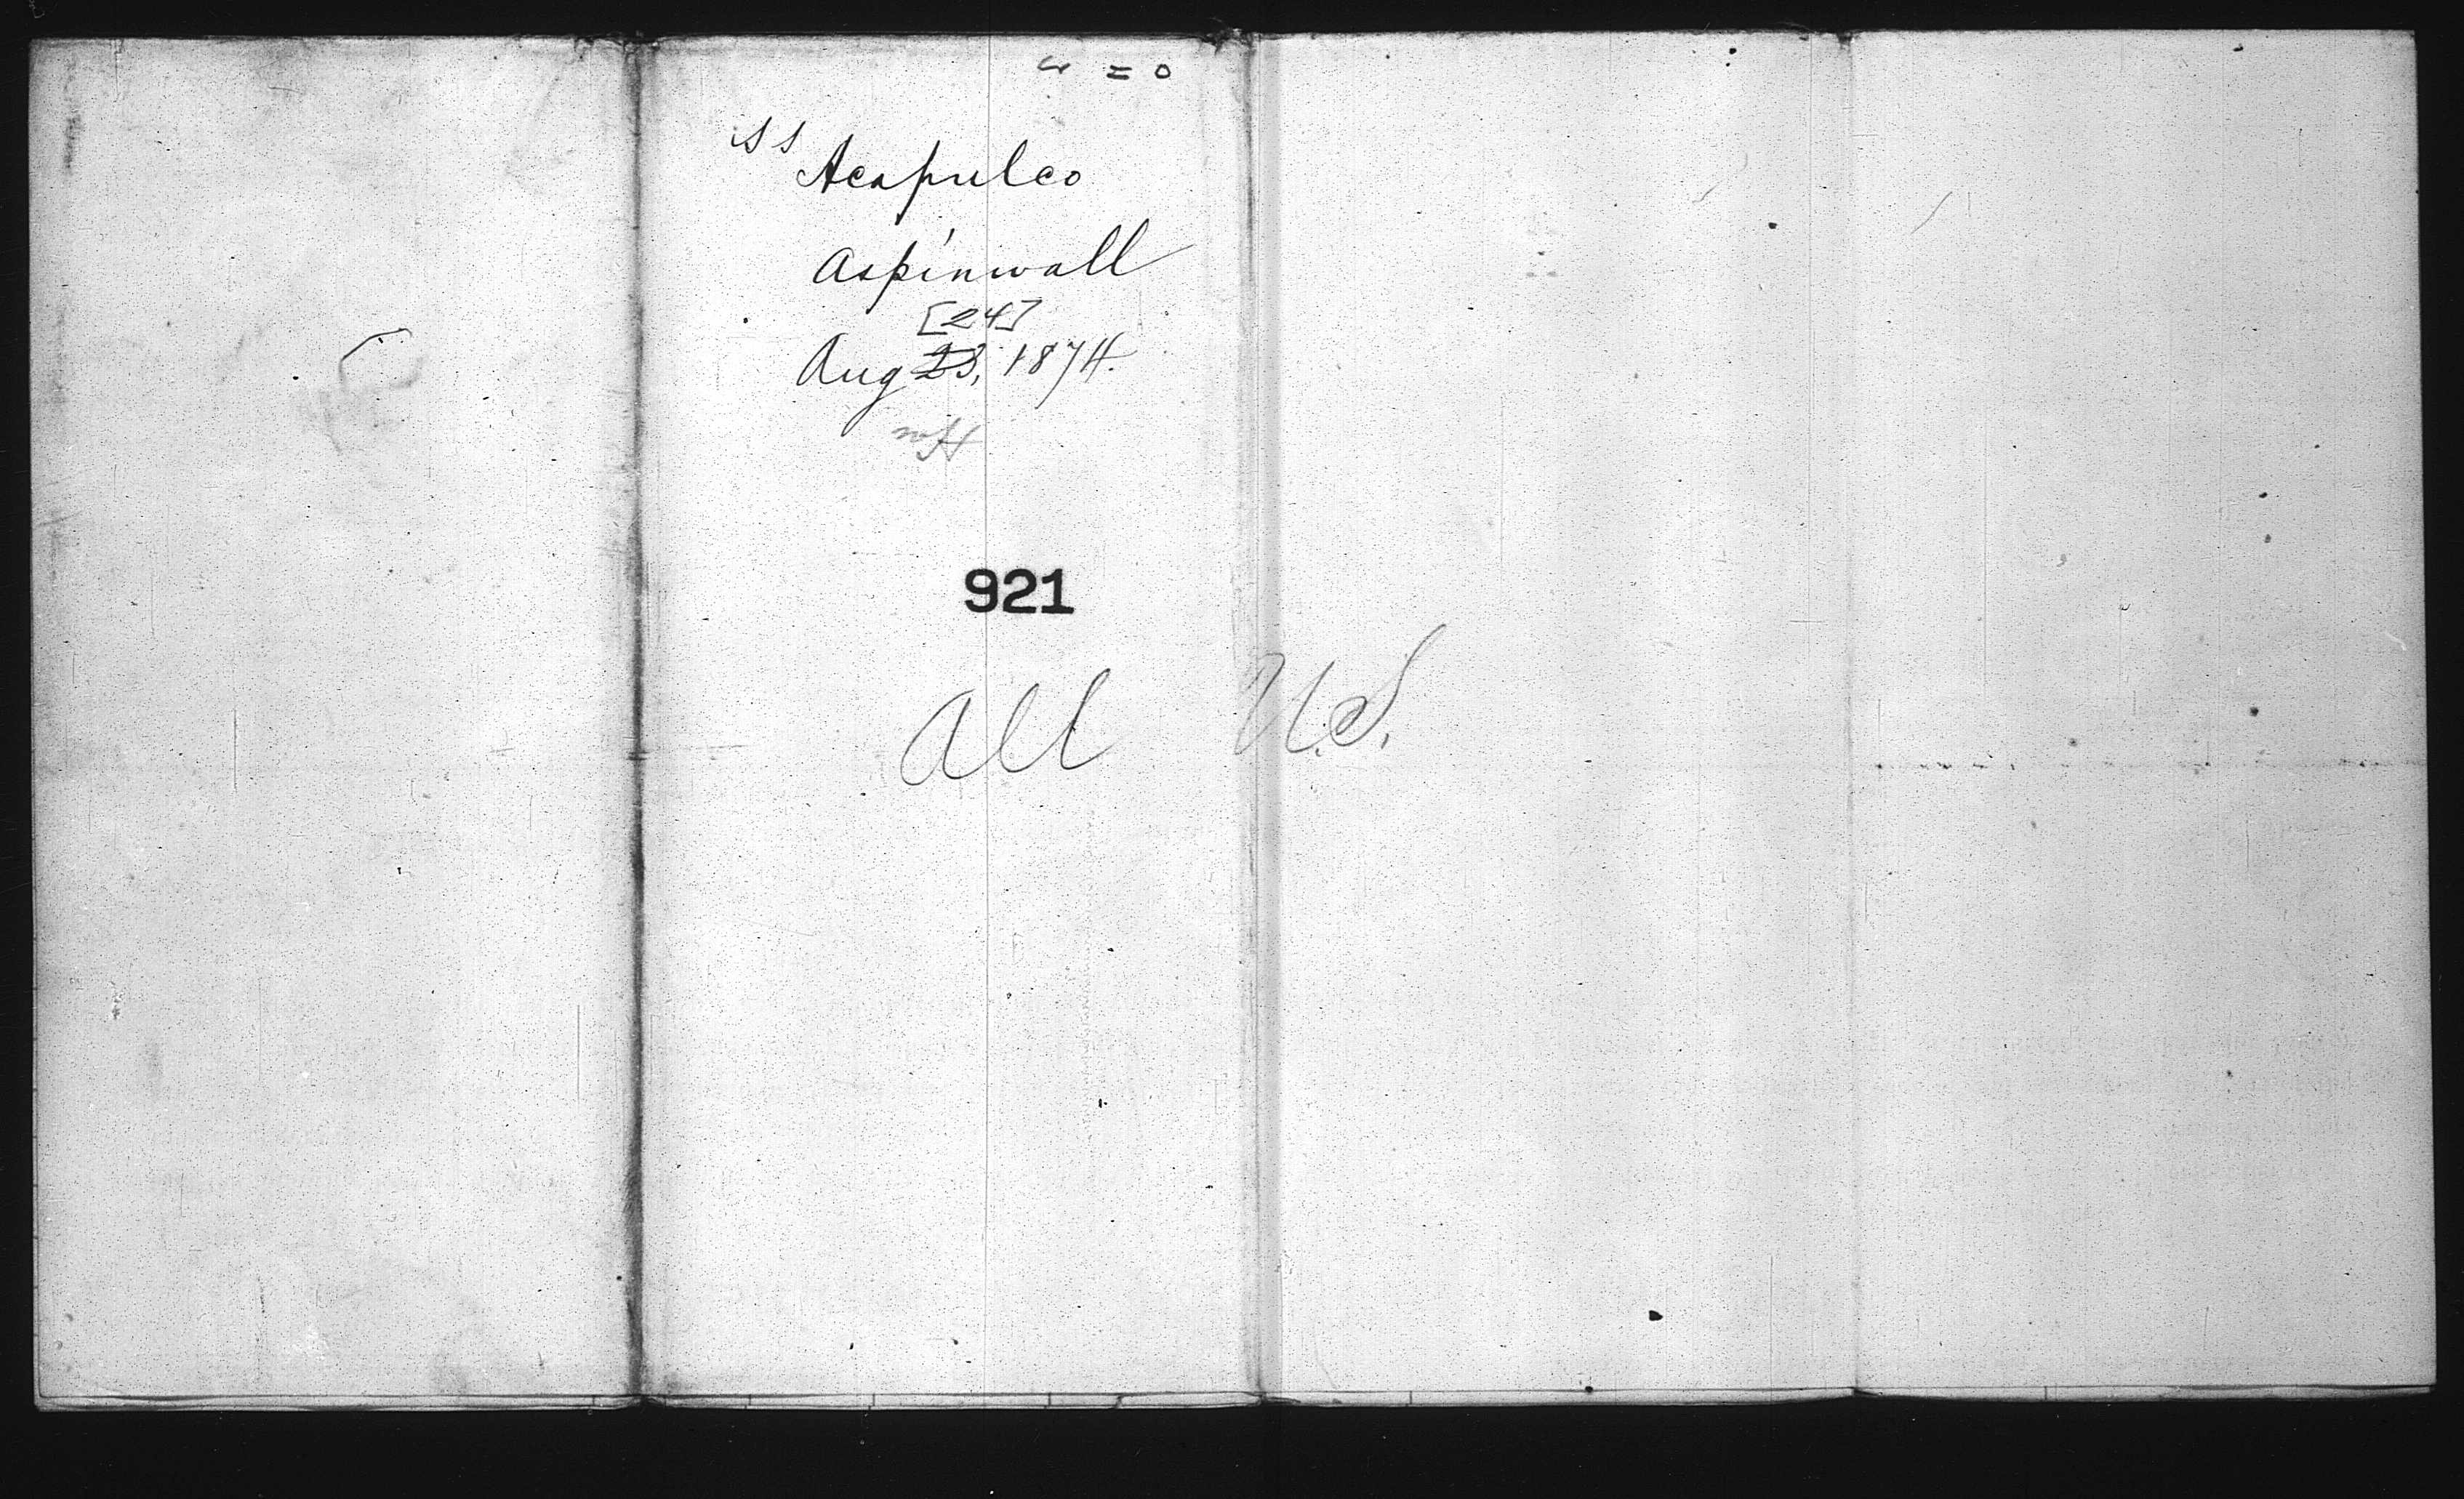 = 0
SS
Acapulco
Aspinwall
[24]
Aug 23, 1874.
921
All U.S.